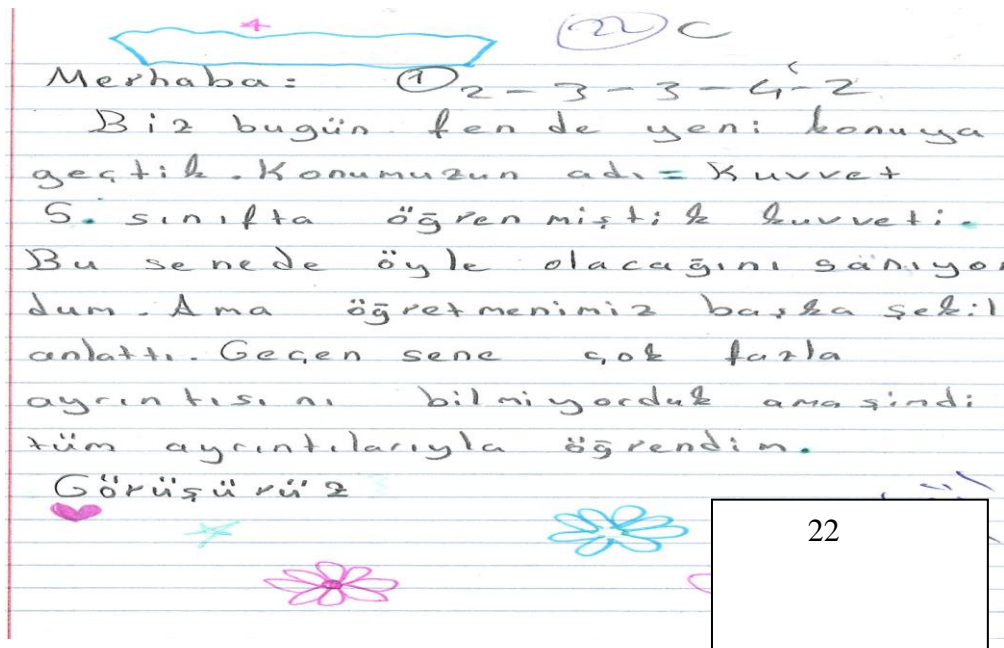 22 C
Merhaba: 1 2-3-3-4-2
Biz bugün fen de yeni konuya
geçtik. Konumuzun adı= Kuvvet
5. sınıfta öğrenmiştik kuvveti.
Bu senede öyle olacağını sanıyor
dum. Ama öğretmenimiz başka şekil
anlattı. Geçen sene çok fazla
ayrıntısını bilmiyorduk ama şindi
tüm ayrıntılarıyla öğrendim.
Görüşürüz
22